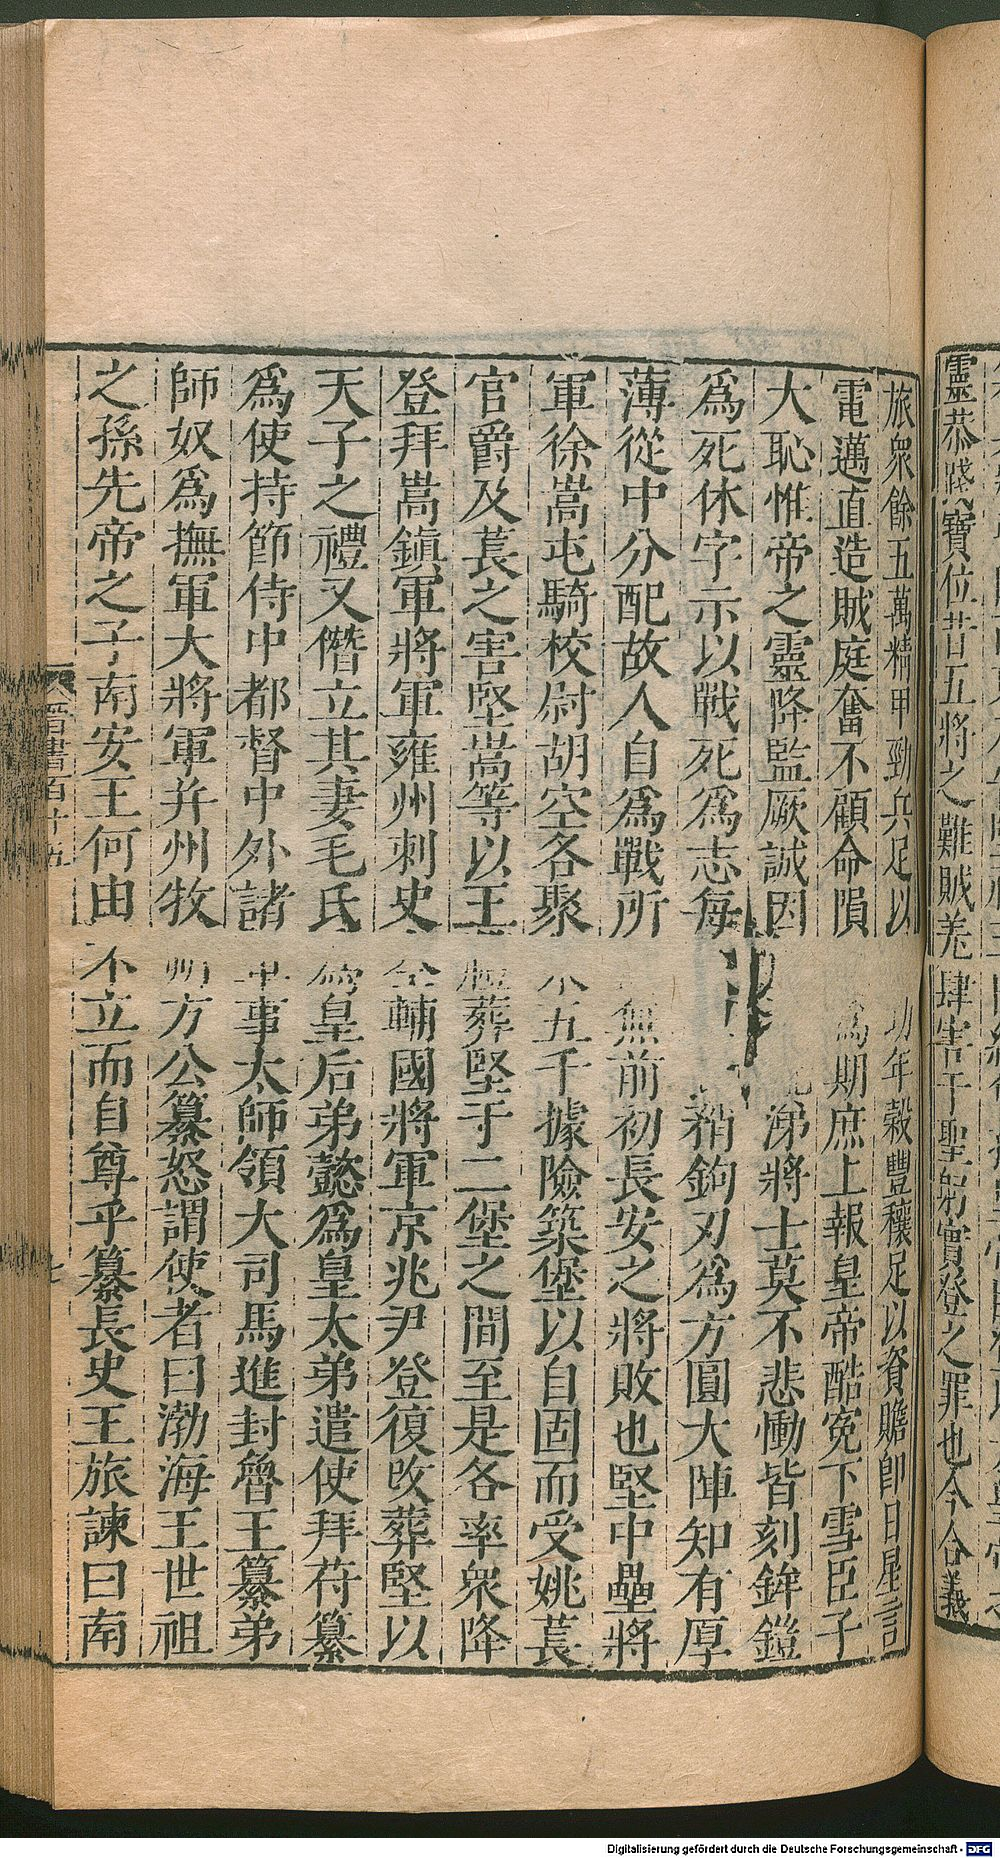 靈恭踐寶位昔五將之難賊羌肆害于聖躬實登之罪也今合義
旅衆餘五萬精甲勁兵足以功年穀豐穰足以資贍即日星言
電邁直造賊庭奮不顧命隕爲期庶上報皇帝酷冤下雪臣子
大恥惟帝之靈降監厥誠因涕將士莫不悲慟皆刻鉾鎧
爲死休字示以戰死爲志每矟鉤刃爲方圓大陣知有厚
薄從中分配故人自爲戰所無前初長安之將敗也堅中壘將
軍徐嵩屯騎校尉胡空各聚五千據險築堡以自固而受姚萇
官爵及萇之害堅嵩等以王禮葬堅于二堡之間至是各率衆降
登拜嵩鎮軍將軍雍州刺史空輔國將軍京兆尹登復改葬堅以
天子之禮又僭立其妻毛氏爲皇后弟懿爲皇太弟遣使拜苻纂
爲使持節侍中都督中外諸軍事太師領大司馬進封魯王纂弟
師奴爲撫軍大將軍并州牧朔方公纂怒謂使者曰渤海王世祖
之孫先帝之子南安王何由不立而自尊乎纂長史王旅諫曰南
晉書百十五
七
Digitalisierung gefördert durch die Deutsche Forschungsgemeinschaft - DFG